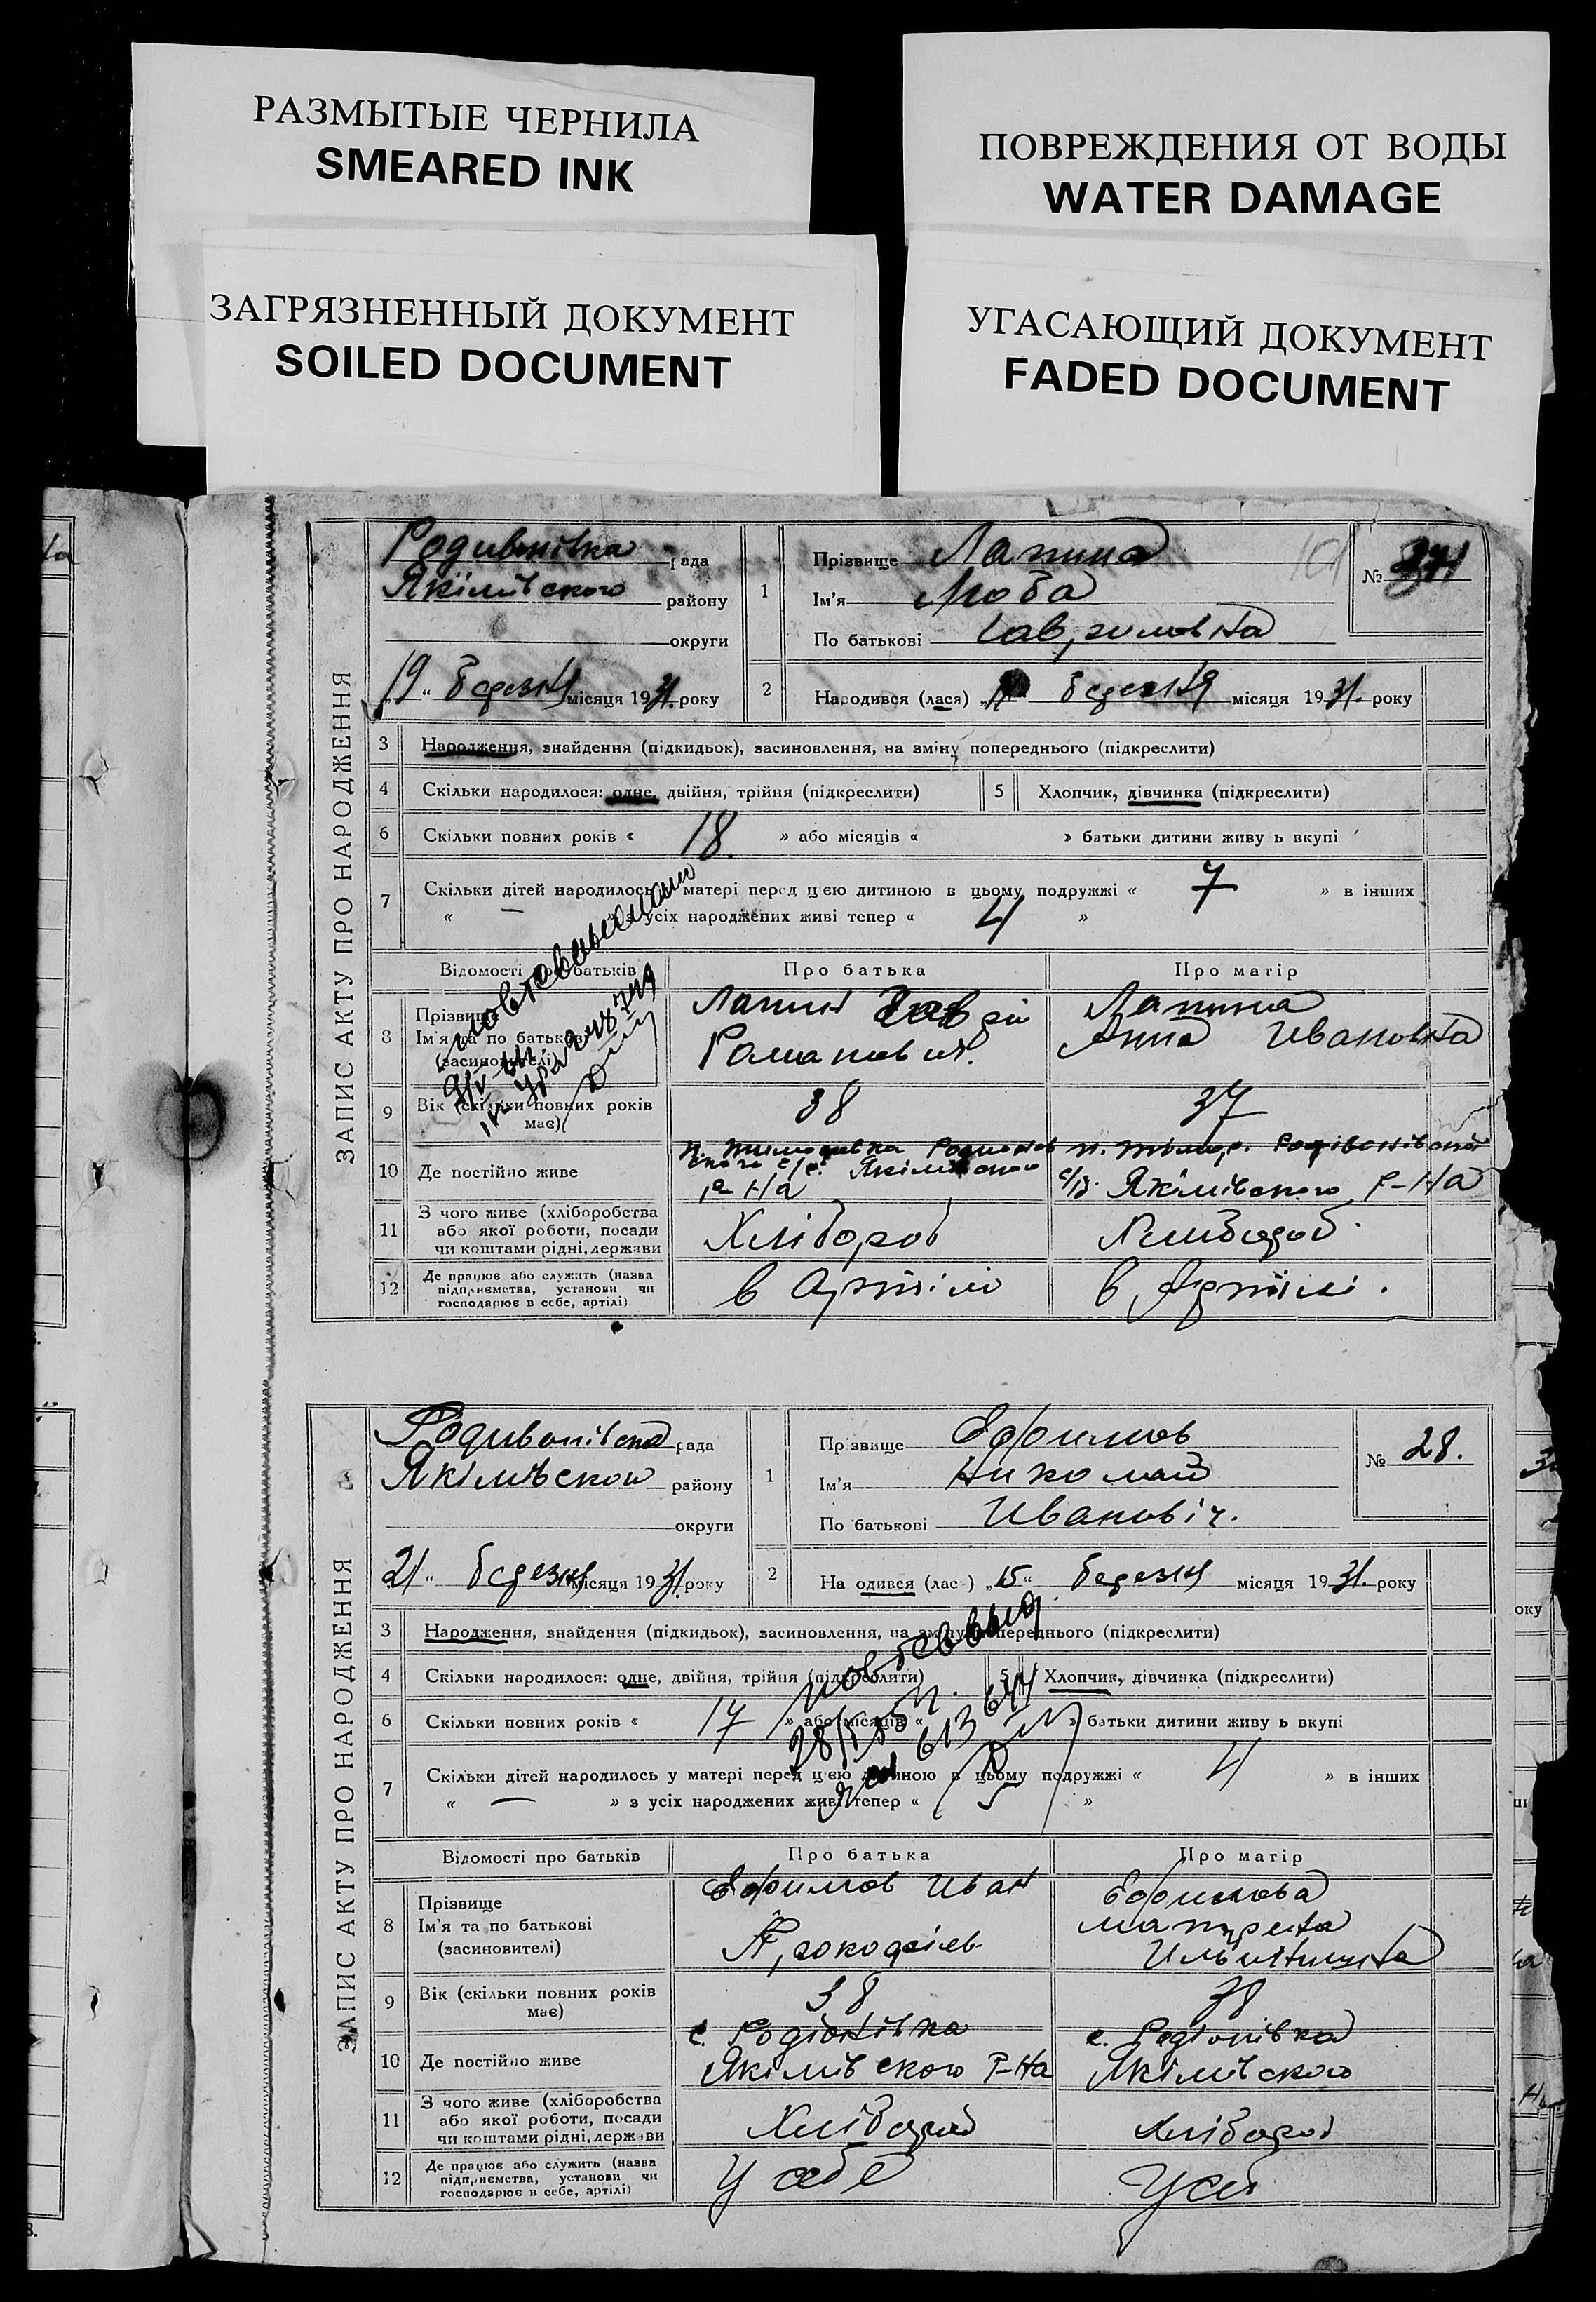 РАЗМЫТЫЕ ЧЕРНИЛА
SMEARED INK
ПОВРЕЖДЕНИЯ ОТ ВОДЫ
WATER DAMAGE
ЗАГРЯЗНЕННЫЙ ДОКУМЕНТ
SOILED DOCUMENT
УГАСАЮЩИЙ ДОКУМЕНТ
FADED DOCUMENT
ЗАПИС АКТУ ПРО НАРОДЖЕННЯ
рада
Якімівского району
округи
19 " березня місяця 1931 року
1 Прізвище Лапина
Ім'я Люба
По батькові
№
2 Народився (лася) березня місяця 1931. року
3 Народження, знайдення (підкидьок), засиновлення, на зміну попереднього (підкреслити)
4 Скільки народилося: одне, двійня, трійня (підкреслити)
5 Хлопчик, дівчинка (підкреслити)
6 Скільки повних років « 18. » або місяців « » батьки дитини живу ь вкупі
7 Скільки дітей народилось у матері перед цією дитиною в цьому подружжі « 7 » в інших
« — » з усіх народжених живі тепер « 4 »
Відомості про батьків
Про батька
Про матір
8 Прізвище
Ім'я та по батькові
(засиновителі)
Лапин
Романович.
Лапина
Анна Ивановна
9 Вік (скільки повних років має)
38
37
10 Де постійно живе
р-на
с/р. Якімівского р-на
11 З чого живе (хліборобства
або якої роботи, посади
чи коштами рідні, держави
Хлібороб
Хлибороб.
12 Де працює або служить (назва
підприємства, установи чи
господарює в себе, артілі)
в Артілі
в Артілі.
ЗАПИС АКТУ ПРО НАРОДЖЕННЯ
Родивонівска рада
Якімівского району
округи
21 " березня місяця 1931. року
1 Пр звище Ефимов
Ім'я Николай
По батькові Иванович.
№ 28.
2 На одився (лас ) „15" березня місяця 1931. року
3 Народження, знайдення (підкидьок), засиновлення, на зміну попереднього (підкреслити)
4 Скільки народилося: одне, двійня, трійня (підкреслити)
5 Хлопчик, дівчинка (підкреслити)
6 Скільки повних років « 17 » або місяців « » батьки дитини живу ь вкупі
7 Скільки дітей народилось у матері перед цією дитиною в цьому подружжі « 4 » в інших
« — » з усіх народжених живі тепер « 5 »
Відомості про батьків
Про батька
Про матір
8 Прізвище
Ім'я та по батькові
(засиновителі)
Ефимов Иван
Ефимова
9 Вік (скільки повних років має)
38
38
10 Де постійно живе
с. Родіонівка
Якімівского р-на
с. Родіонівка
Якімівского
11 З чого живе (хліборобства
або якої роботи, посади
чи коштами рідні, держави
Хлібороб
Хлібороб
12 Де працює або служить (назва
підприємства, установи чи
господарює в себе, артілі)
У себе
У себе